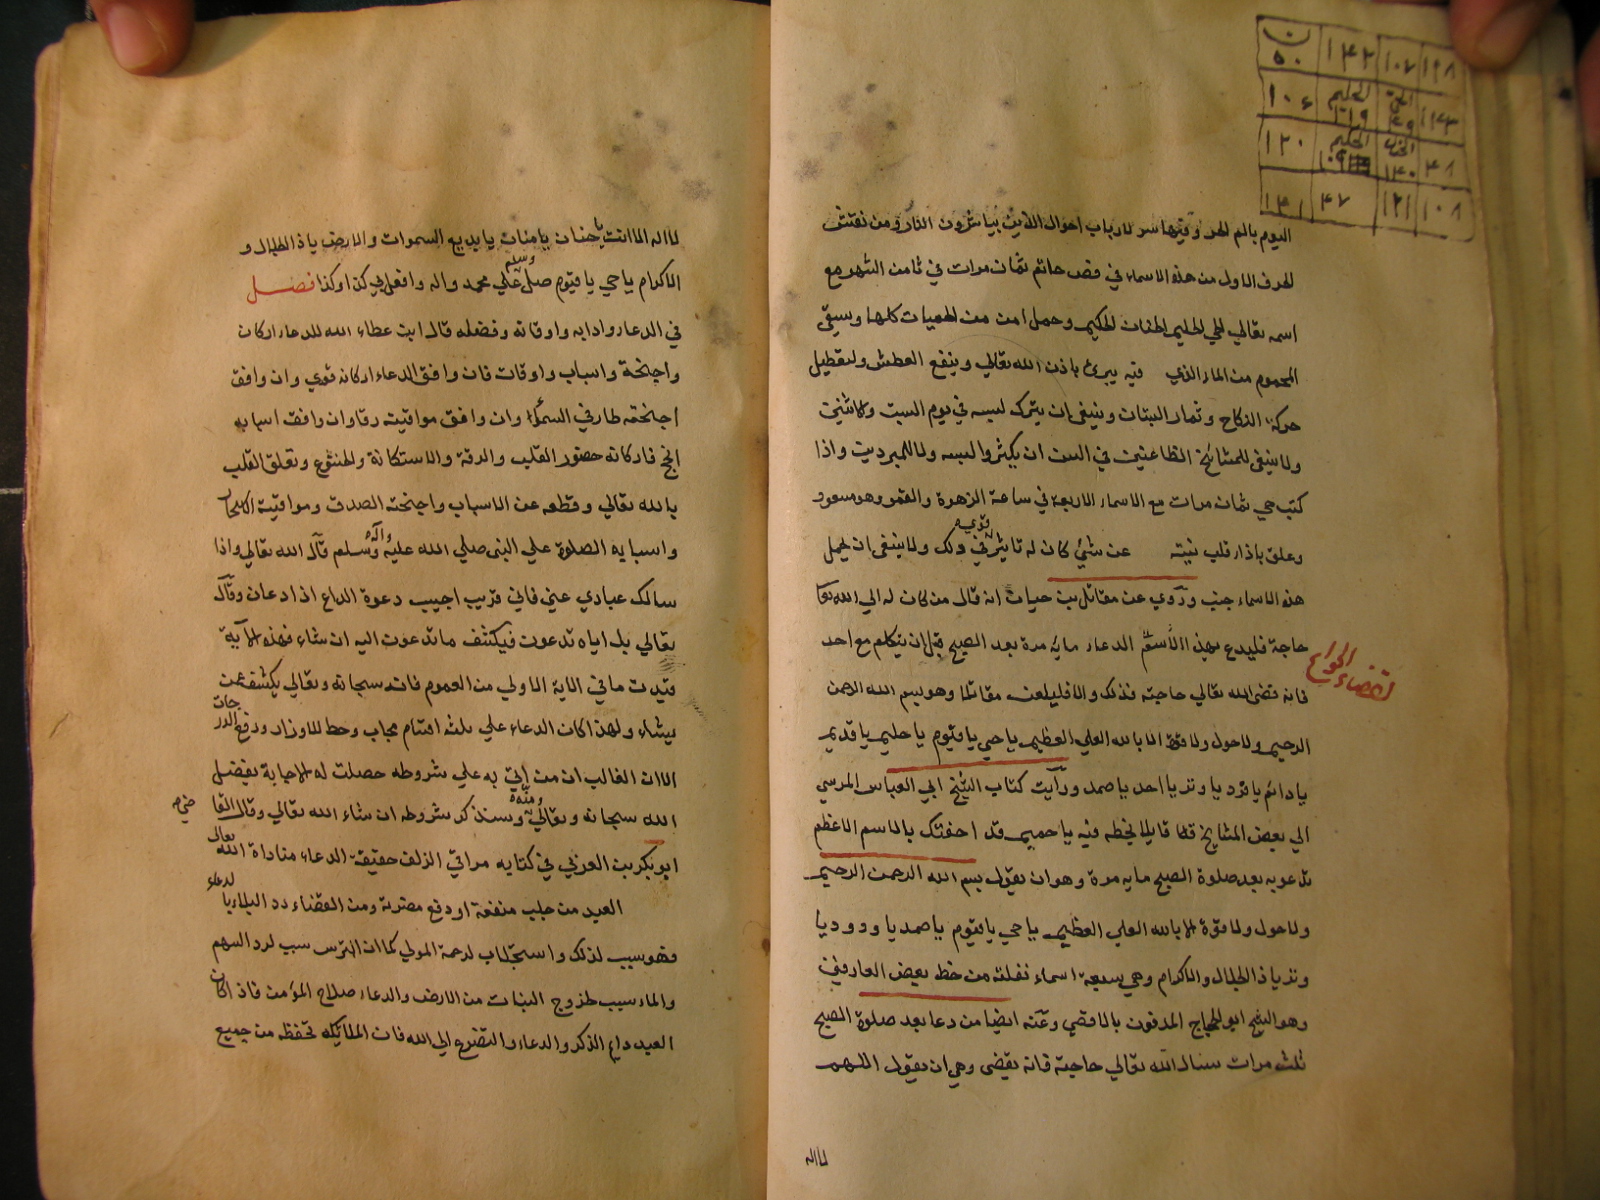 ن ١٤٢ ١٠٧ ١٩٨
٥٠
١٠٦ الحليم الحي ١٤٣
١٢٠ الحكيم الحنان ٤٨
١٤١ ٤٧ ١٢١ ١٠٨
اليوم بالم الحر وفيها سر لارباب احوال الذين يباشرون النار ومن نقش
الحرف الاول من هذه الاسماء في فص خاتم ثمان مرات في ثامن الشهر مع
اسمه تعالى الحي الحليم الحنان الحكيم وحمل امن من الحميات كلها وسقي
المحموم من الماء الذي فيه يبرئ باذن الله تعالي وينفع العطش ولتعطيل
حركة النكاح وثمار النبات وينبغي ان يترك لبسه في يوم السبت والاثنين
ولا ينبغي للمشائخ الطاعنين في السن ان يكثروا لبسه ولا للمبرودين واذا
كتب حي ثمان مرات مع الاسماء الاربعة في ساعة الزهرة والقمر وهو مسعود
وعلق باذا قلب نيته عن شيء كان له تاثير قوي في ذلك ولا ينبغي ان يحمل
هذه الاسماء جنب وروي عن مقاتل بن حيان انه قال من كان له الي الله تعا
حاجة فليدع بهذا الدعاء مايه مرة بعد الصبح قبل ان يتكلم مع احد
لقضاء الحوائج
فانه تقضى الله تعالي حاجته فذلك والا فليلعن مقاتلا وهو بسم الله الرحمن
الرحيم ولا حول ولا قوة الا بالله العلي العظيم يا حي يا قيوم يا حليم يا قديم
يا دائم يا فرد يا وتر يا احد يا صمد ورأيت كتاب الشيخ ابي العباس المرسي
الي بعض المشايخ قائلا بخطه فيه يا حميم قد احفتك بالاسم الاعظم
تدعو به بعد صلوة الصبح مايه مرة وهو ان تقول بسم الله الرحمن الرحيم
ولا حول ولا قوة الا بالله العلي العظيم يا حي يا قيوم يا صمد يا ودود يا
وتر يا ذا الجلال والاكرام وهي سبعة اسماء نقلته من خط بعض العارفين
وهو الشيخ ابو الحجاج المدفون بالاقصي وعنه ايضا من دعا بعد صلوة الصبح
ثلث مرات سئال الله تعالي حاجية فانه تقضى وهي ان تقول اللهم
لا اله
لا اله الا انت يا حنان يا منان يا بديع السموات والارض يا ذا الجلال و
الاكرام يا حي يا قيوم صل علي محمد واله وسلم وافعل لي كذا وكذا فصل
في الدعاء وادابه واوقاته وفضله قال ابن عطاء الله للدعاء اركان
واجنحة واسباب واوقات فان وافق الدعاء اركانه قوي وان وافق
اجنحته طار في السماء وان وافق مواقيته رقا وان وافق اسبابه
انجح فاركانه حضور القلب والرقة والاستكانة والخشوع وتعلق القلب
بالله تعالي وقطعه عن الاسباب واجنحته الصدق ومواقيته الاسحار
واسبابه الصلوة علي النبي صلي الله عليه وآله وسلم قال الله تعالي واذا
سالك عبادي عني فاني قريب اجيب دعوة الداع اذا دعان وقال
تعالي بل اياه تدعون فيكشف ما تدعون اليه ان شاء فهذه الآية
قيدت ما في الاية الاولي من العموم فانه سبحانه وتعالي يكشف عمن
يشاء ولهذا كان الدعاء علي ثلث اقسام مجاب وحط للاوزار ودفع الدرجات
الا ان الغالب ان من اتي به علي شروطه حصلت له الاجابة بفضل
الله سبحانه وتعالي ومنه وسنذكر شروطه ان شاء الله تعالي وقال القا
ضي
ابو بكر بن العربي في كتابه مراقي الزلف حقيقة الدعاء مناداة الله تعالى
العبد من جلب منفعة او دفع مضرية ومن القضاء رد البلاء با لدعاء
فهو سبب لذلك واستجلاب لرحمة المولي كما ان الترس سبب لرد السهم
والماء سبب لخروج النبات من الارض والدعاء صلاح المؤمن فاذا كان
العبد دايم الذكر والدعاء والتضرع الي الله فان الملائكه تحفظه من جميع